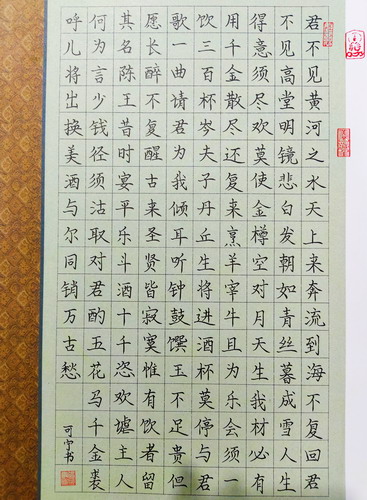 君不见黄河之水天上来奔流到海不复回君
不见高堂明镜悲白发朝如青丝暮成雪人生
得意须尽欢莫使金樽空对月天生我材必有
用千金散尽还复来烹羊宰牛且为乐会须一
饮三百杯岑夫子丹丘生将进酒杯莫停与君
歌一曲请君为我倾耳听钟鼓馔玉不足贵但
愿长醉不复醒古来圣贤皆寂寞惟有饮者留
其名陈王昔时宴平乐斗酒十千恣欢谑主人
何为言少钱径须沽取对君酌五花马千金裘
呼儿将出换美酒与尔同销万古愁